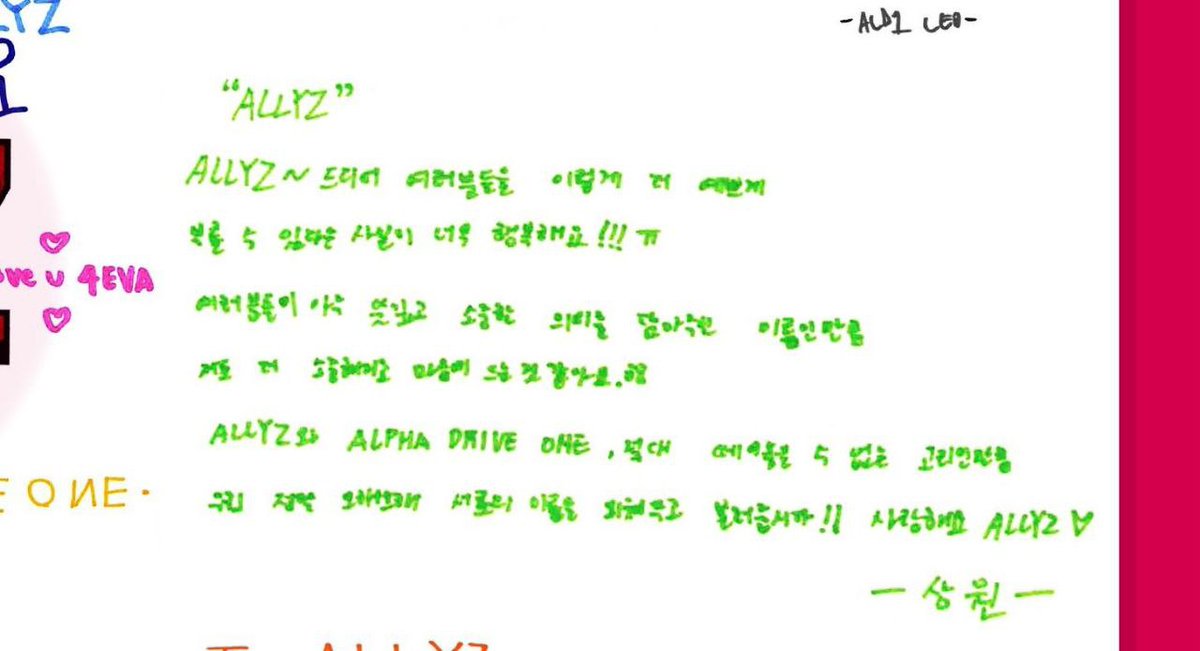 -ALD1 LEO-
“ALLYZ”
ALLYZ~ 드디어 여러분들을 이렇게 더 예쁘게
부를 수 있다는 사실이 너무 행복해요!!! ㅠ
여러분들이 아주 뜻깊고 소중한 의미를 담아주신 이름인만큼
저도 더 소중해지고 마음에 드는 것 같아요.
ALLYZ와 ALPHA DRIVE ONE, 절대 떼어놓을 수 없는 고리인만큼
우리 정말 오래오래 서로의 이름을 외워두고 불러줍시다!! 사랑해요 ALLYZ
— 상원 —
♡
ove u 4EVA
♡
E ONE.